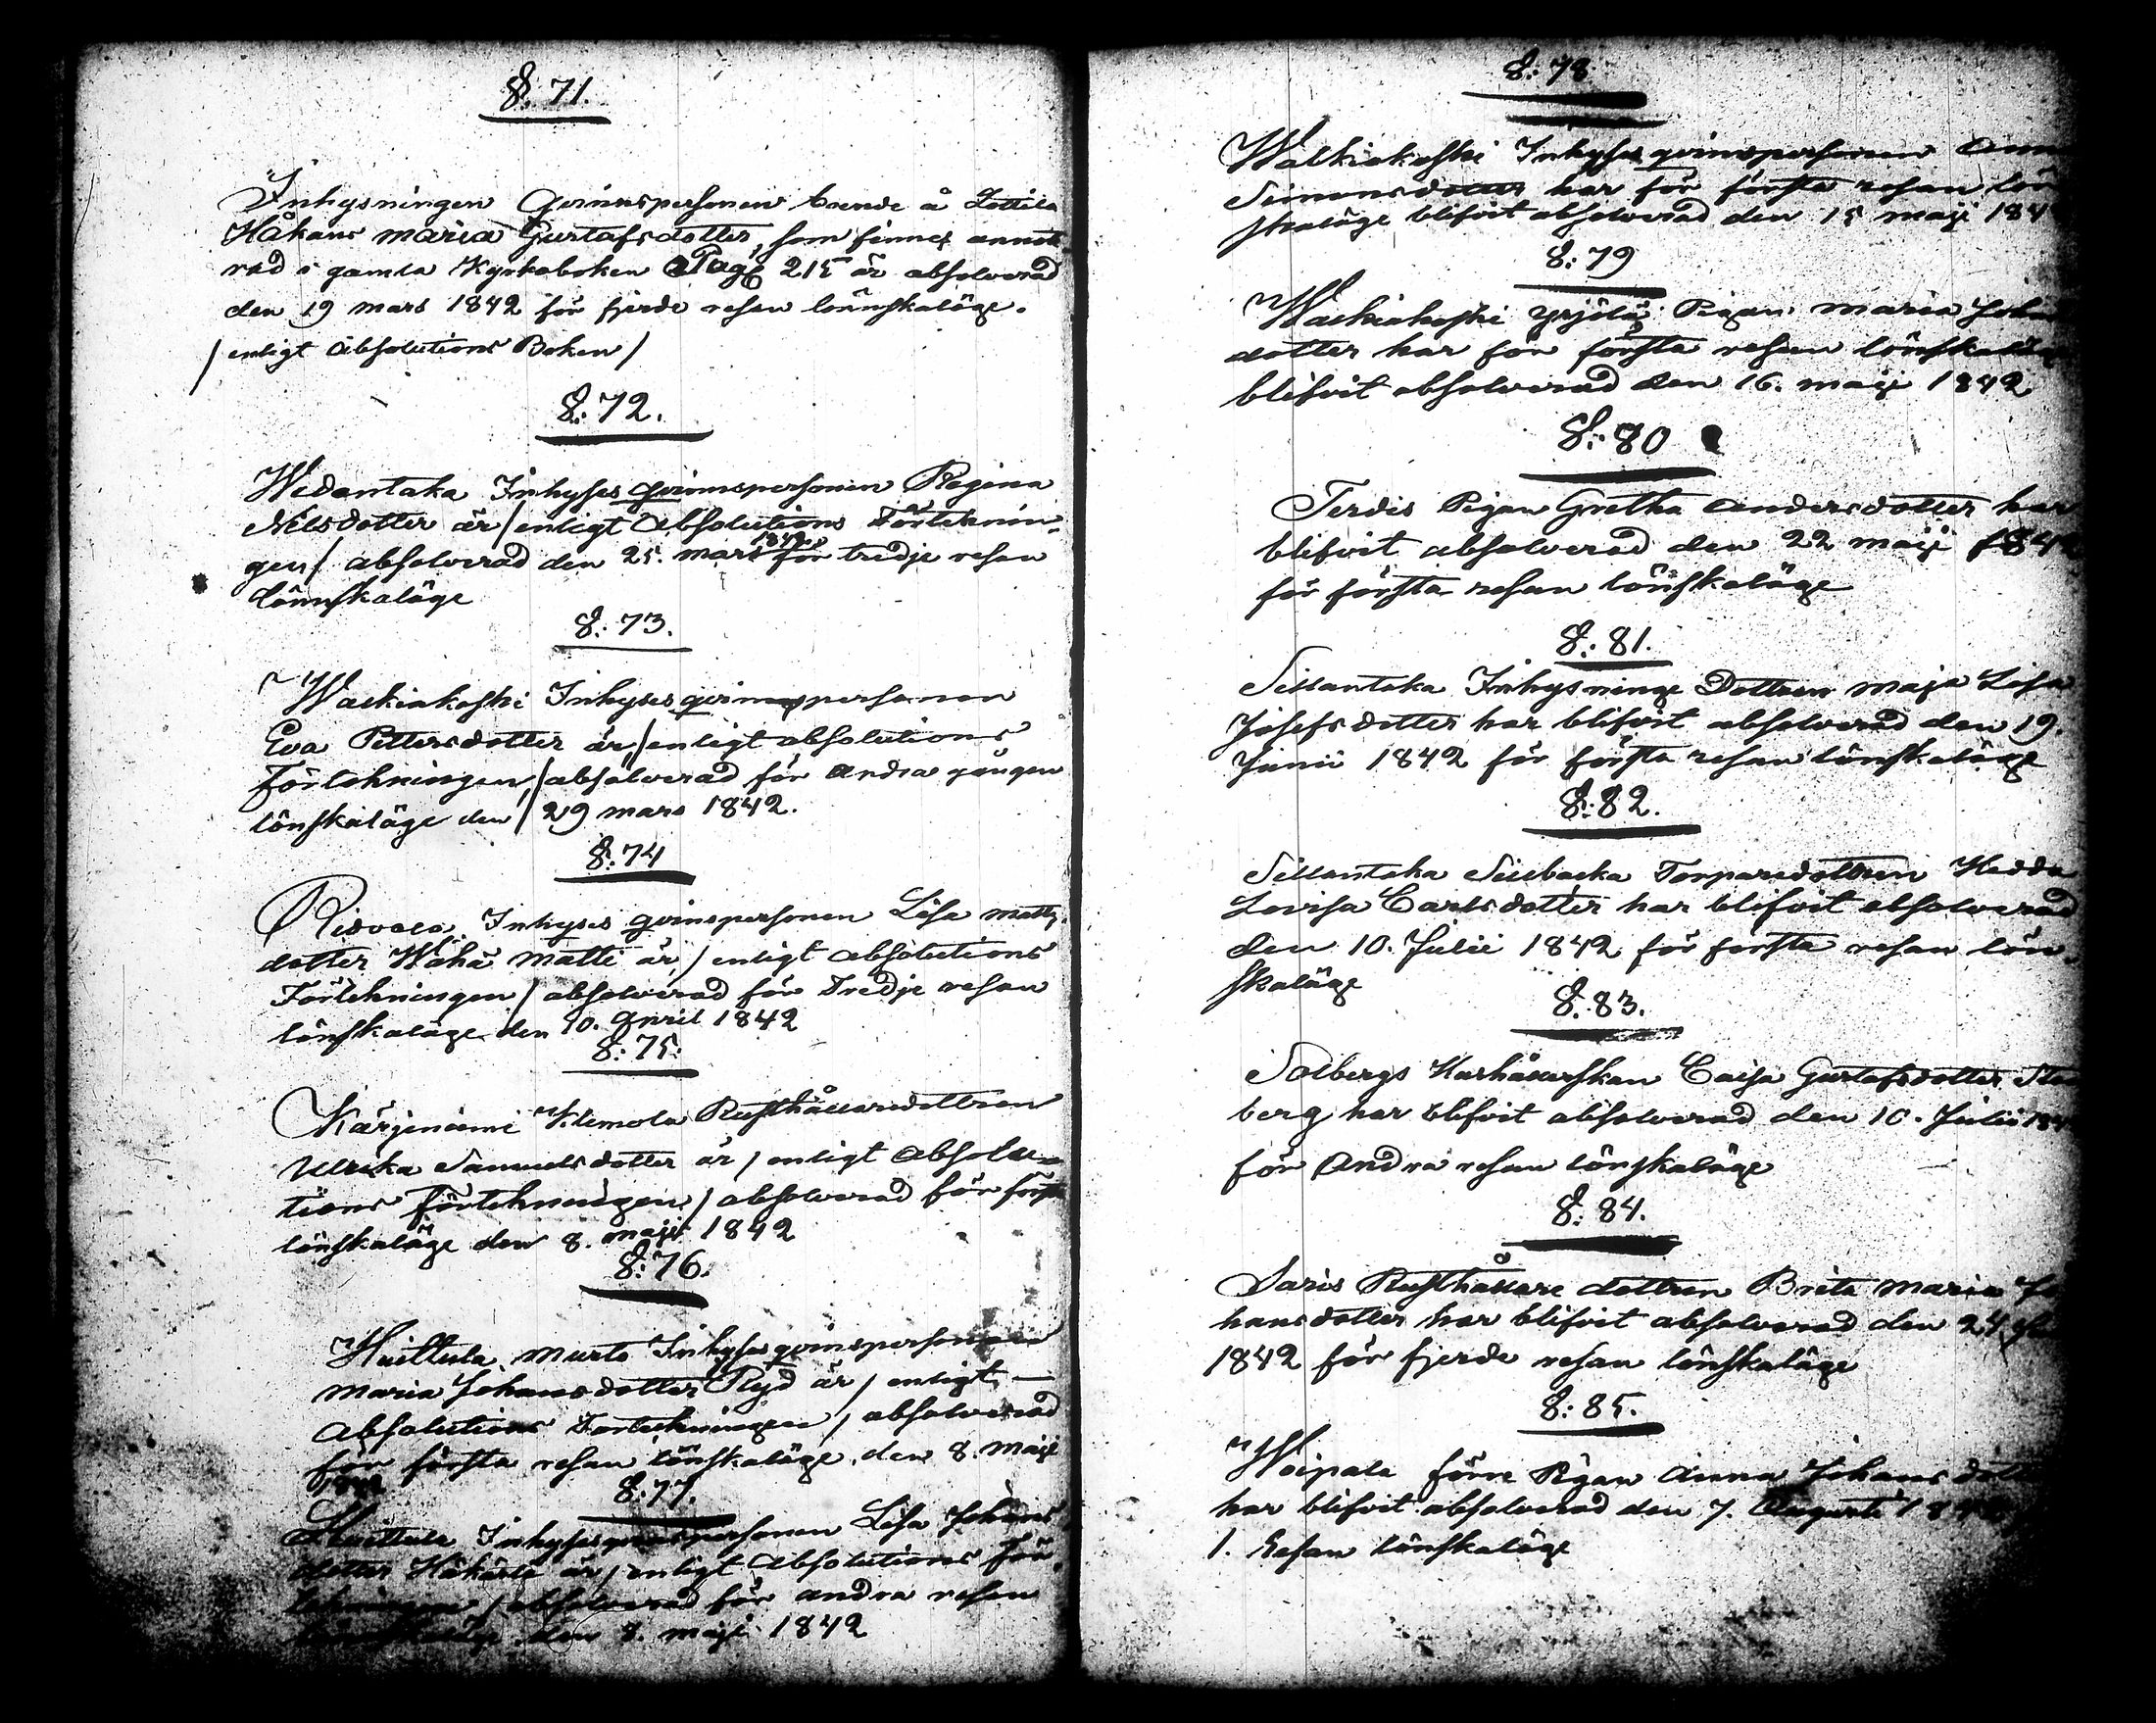 §: 71.
Inhysningen Qvinnspersonen boende å Lottila
Håkans Maria Gustafsdotter, som finnes annot
rad i gamla Kyrkoboken Pag 215 är absolverad
den 19 mars 1842 för fjerde resan lönnskaläge.
/enligt Absolutions Boken/
§: 72.
Wedentaka Inhyses qvinnspersonen Regina
Nilsdotter är /enligt Absolutions Förteknin-
gen/ absolverad den 25. mars 1842 för tredje resan
lönnskaläge
§: 73.
Walkiakoski Inhyses qvinspersonen
Eva Pettersdotter är /enligt absolutions
Förtekningen,/ absolverad för andra gången
lönskaläge den 29 mars 1842.
§: 74
Ridvala Inhyses qvinspersonen Lisa Matts-
dotter Wähä Matti är / enligt absolutions
Förtekningen / absolverad för Tredje resan
lönskaläge den 10. April 1842
§: 75.
Kärjeniemi Klemola Rusthållaredottren
Ulrika Samuelsdotter är / enligt Absolu-
tions Förtekningen / absolverad för första
lönskaläge den 8. maji 1842
§: 76.
Huittula Murto Inhyses qvinspersonen
Maria Johansdotter Ryd är / enligt
Absolutions Fortekningen / absolverad
för första resan lönskaläge den 8. maji
1842
§: 77.
Huittula Inhyses qvinspersonen Lisa Johans
dotter är / enligt Absolutions För-
tekningen / absolverad för andra resan
lönskaläge den 8. maji 1842
§: 78
Walkiakoski Inhyses qvinspersonen Anna
Simonsdotter har för första resan lön
skaläge blifvit absolverad den 15 maji 184
§: 79
Walkiakoski Yrjölä Pigan Maria Johan
dotter har för första resan lönskaläge
blifvit absolverad den 16. maji 1842
§: 80
Terdis Pigan Gretha Andersdotter har
blifvit absolverad den 22 maji 1842
för första resan lönskaläge
§: 81.
Sillantaka Inhysninge Dottren Maja Lisa
Josefsdotter har blifvit absolverad den 19.
Junii 1842 för första resan lönskaläge
§: 82.
Sillantaka Sillbacka Torparedottren Hedda
Lovisa Carlsdotter har blifvit absolverad
den 10. Julii 1842 för första resan lön-
skaläge
§: 83.
Solbergs Hushållerskan Caisa Gustafsdotter
berg har blifvit absolverad den 10. Julii 184
för Andra resan lönskaläge
§: 84.
Saris Rusthållare dottren Brita Maria Jo
hansdotter har blifvit absolverad den 24
1842 för fjerde resan lönskaläge
§: 85.
Woipala förre Pigan Anna Johans dotter
har blifvit absolverad den 7. Augusti 184
1. Resan lönskaläge